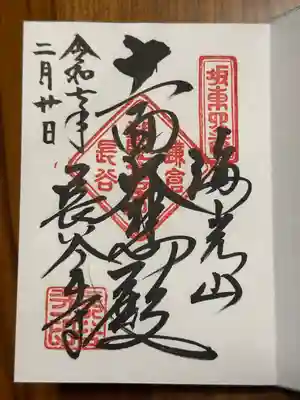 坂東
海光山
十一面大悲殿
鎌倉
長谷
長谷寺
令和七年
二月廿日